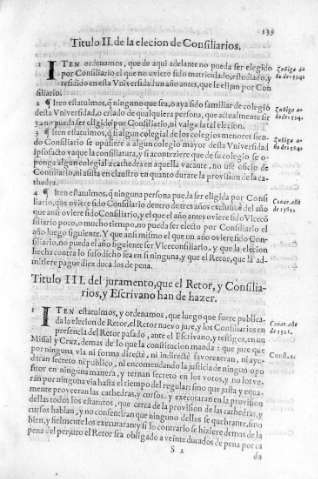 139
Titulo II. de la elecion de Consiliarios.
1 ITEN ordenamos, que de aqui adelante no pueda ser elegido
por Consiliario el que no uviere sido matriculado, estudiado, y
residido en esta Vniversidad un año antes, que le elijan por Con
siliario.
2 ¶ Iten estatuimos, q̃ ninguno que sea, o aya sido familiar de colegio
desta Vniversidad, o criado de qualquiera persona, que actualmente sir
va pueda ser elegido por Consiliario, ni valga la tal elecion.
3 ¶ Iten estatuimos, q̃ si algun colegial de los colegios menores sien-
do Consiliario se opusiere a algun colegio mayor desta Vniversidad
ipso facto vaque la consiliatura, y si acontriere que de su colegio se o-
ponga algun colegial a cathedra en aquella vacante, no use oficio de
Consiliario, ni asista en claustro en quanto durare la provision de la ca-
thedra.
4 ¶ Iten estatuimos, q̃ ninguna persona pueda ser elegida por Consi
liario, que oviere sido Consiliario dentro de tres años exclusive del año
que assi oviere sido Consiliario, y el que el año antes oviere sido Viceco
siliario poco, o mucho tiempo, no pueda ser electo por Consiliario el
año luego siguiente. Y que assi mismo el que un año oviere sido Con-
siliario, no pueda el año siguiente ser Viceconsiliario, y que la elecion
hecha contra lo susodicho sea en si ninguna, y que el Retor, que la ad-
mitiere pague diez ducados de pena.
Titulo III. del juramento, que el Retor, y Consilia-
rios, y Escrivano han de hazer.
1 ITEN estatuimos, y ordenamos, que luego que fuere publica-
da la elecion de Retor, el Retor nuevo jure, y los Consiliarios en
presencia del Retor pasado, ante el Escrivano, y testigos, en un
Missal y Cruz, demas de lo que la constitucion manda: que jure que
por ninguna via ni forma directè, ni indirectè favoreceran, ni ayu-
daran secreto ni publico, ni encomendando la justicia de ningun opo
sitor en ninguna manera, y ternan secreto en los votos, y no
ran por ninguna via hasta el tiempo del regular: sino que justa y egual-
mente proveeran las cathedras, y cursos, y executaran en la provision
dellas todos los estatutos, que cerca de la provision de las cathedras, y
cursos hablan, y no consentiran que ninguno dellos se quebrante, sino
bien, y fielmente los executaran y si lo contrario se hiziere demas de la
pena del perjuro el Retor sea obligado a veinte ducados de pena por ca
S 2
da